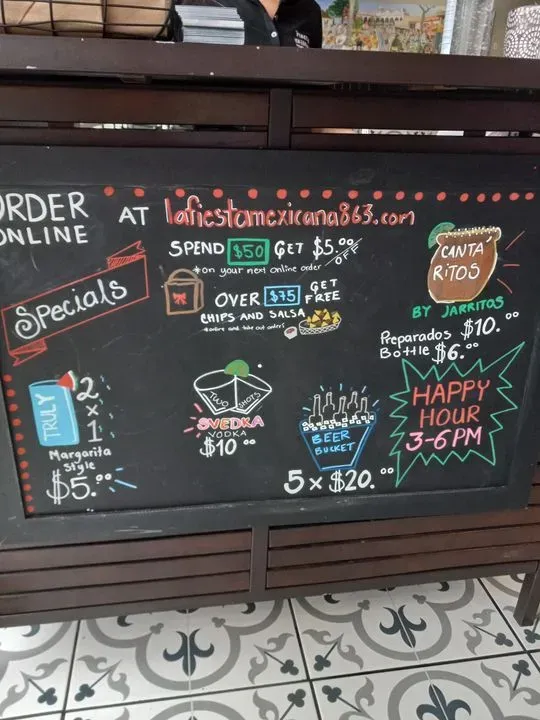 ORDER
ONLINE
AT lafiestamexicana863.com
SPEND $50 GET $5.00 OFF
*on your next online order
Specials
OVER $75 GET FREE
CHIPS AND SALSA
*online and take out orders
CANTA
RITOS
BY JARRITOS
Preparados $10.00
Bottle $6.00
TRULY
2 x 1
Margarita
style
$5.00
TWO SHOTS
SVEDKA
VODKA
$10.00
BEER
BUCKET
5 x $20.00
HAPPY
HOUR
3-6 PM